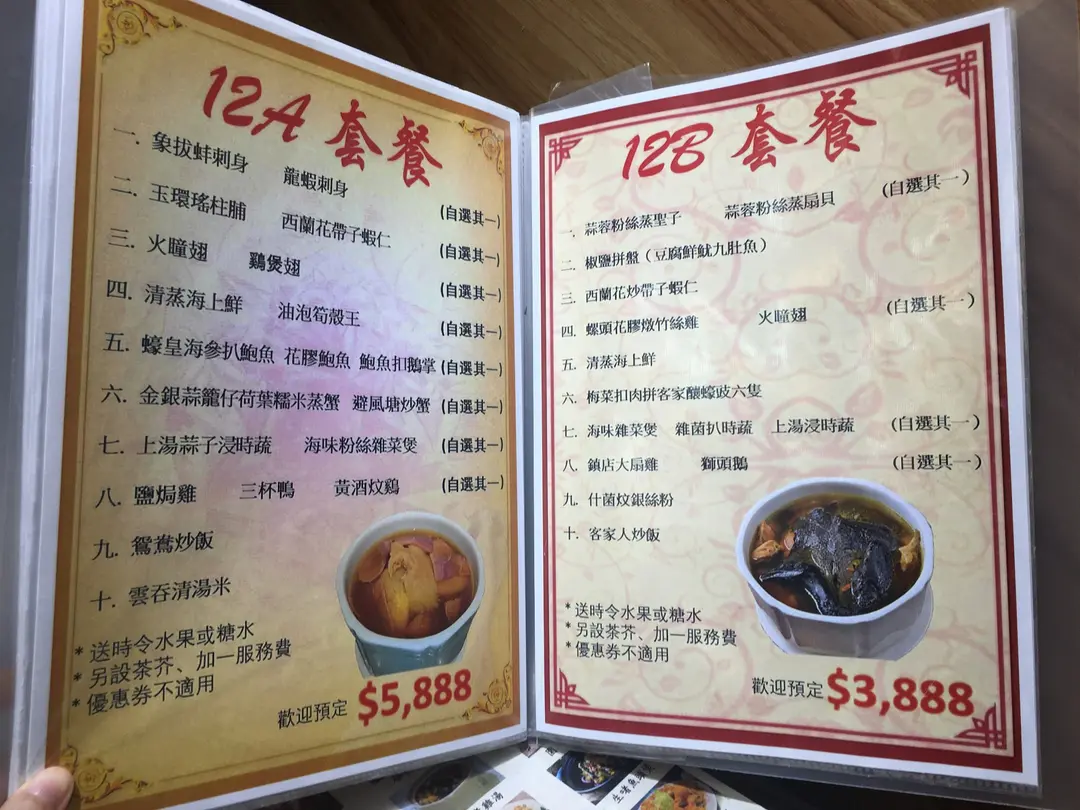 12A 套餐
一. 象拔蚌刺身 龍蝦刺身 (自選其一)
二. 玉環瑤柱脯 西蘭花帶子蝦仁 (自選其一)
三. 火瞳翅 鷄煲翅 (自選其一)
四. 清蒸海上鮮 油泡筍殼王 (自選其一)
五. 蠔皇海參扒鮑魚 花膠鮑魚 鮑魚扣鵝掌 (自選其一)
六. 金銀蒜籠仔荷葉糯米蒸蟹 避風塘炒蟹 (自選其一)
七. 上湯蒜子浸時蔬 海味粉絲雜菜煲 (自選其一)
八. 鹽焗雞 三杯鴨 黃酒炆鷄 (自選其一)
九. 鴛鴦炒飯
十. 雲吞清湯米
* 送時令水果或糖水
* 另設茶芥、加一服務費
* 優惠券不適用
歡迎預定 $5,888
12B 套餐
一. 蒜蓉粉絲蒸聖子 蒜蓉粉絲蒸扇貝 (自選其一)
二. 椒鹽拼盤(豆腐鮮魷九肚魚)
三. 西蘭花炒帶子蝦仁
四. 螺頭花膠燉竹絲雞 火瞳翅 (自選其一)
五. 清蒸海上鮮
六. 梅菜扣肉拼客家釀蠔豉六隻
七. 海味雜菜煲 雜菌扒時蔬 上湯浸時蔬 (自選其一)
八. 鎮店大扇雞 獅頭鵝 (自選其一)
九. 什菌炆銀絲粉
十. 客家人炒飯
* 送時令水果或糖水
* 另設茶芥、加一服務費
* 優惠券不適用
歡迎預定 $3,888